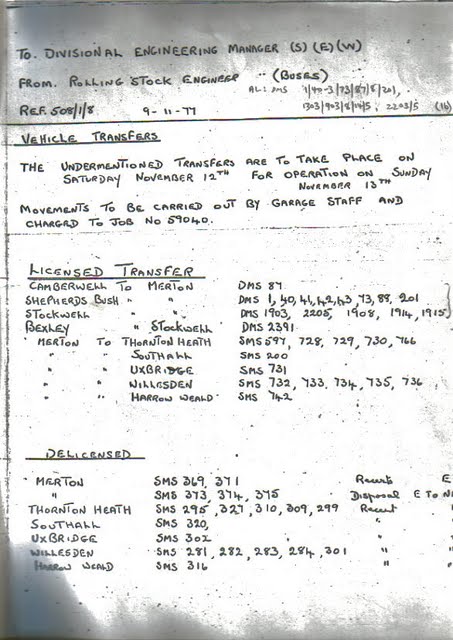 TO. DIVISIONAL ENGINEERING MANAGER (S) (E) (W)
FROM. ROLLING STOCK ENGINEER (BUSES)
REF. 508/1/8 9-11-77
VEHICLE TRANSFERS
THE UNDERMENTIONED TRANSFERS ARE TO TAKE PLACE ON
SATURDAY NOVEMBER 12TH FOR OPERATION ON SUNDAY
NOVEMBER 13TH
MOVEMENTS TO BE CARRIED OUT BY GARAGE STAFF AND
CHARGED TO JOB NO 59040.
LICENSED TRANSFER
CAMBERWELL TO MERTON DMS 87
SHEPHERDS BUSH " " DMS 1, 40, 41, 42, 43, 73, 88, 201
STOCKWELL " " DMS 1903, 2205, 1908, 1914, 1915
BEXLEY " STOCKWELL DMS 2391
MERTON TO THORNTON HEATH SMS 597, 728, 729, 730, 766
" " SOUTHALL SMS 200
" " UXBRIDGE SMS 731
" " WILLESDEN SMS 732, 733, 734, 735, 736
" " HARROW WEALD SMS 742
DELICENSED
MERTON SMS 369, 371 Recent E
" SMS 373, 374, 375 Disposal E TO N
THORNTON HEATH SMS 295, 327, 310, 309, 299 Recent "
SOUTHALL SMS 320, " "
UXBRIDGE SMS 302 " "
WILLESDEN SMS 281, 282, 283, 284, 301 " "
HARROW WEALD SMS 316 " "